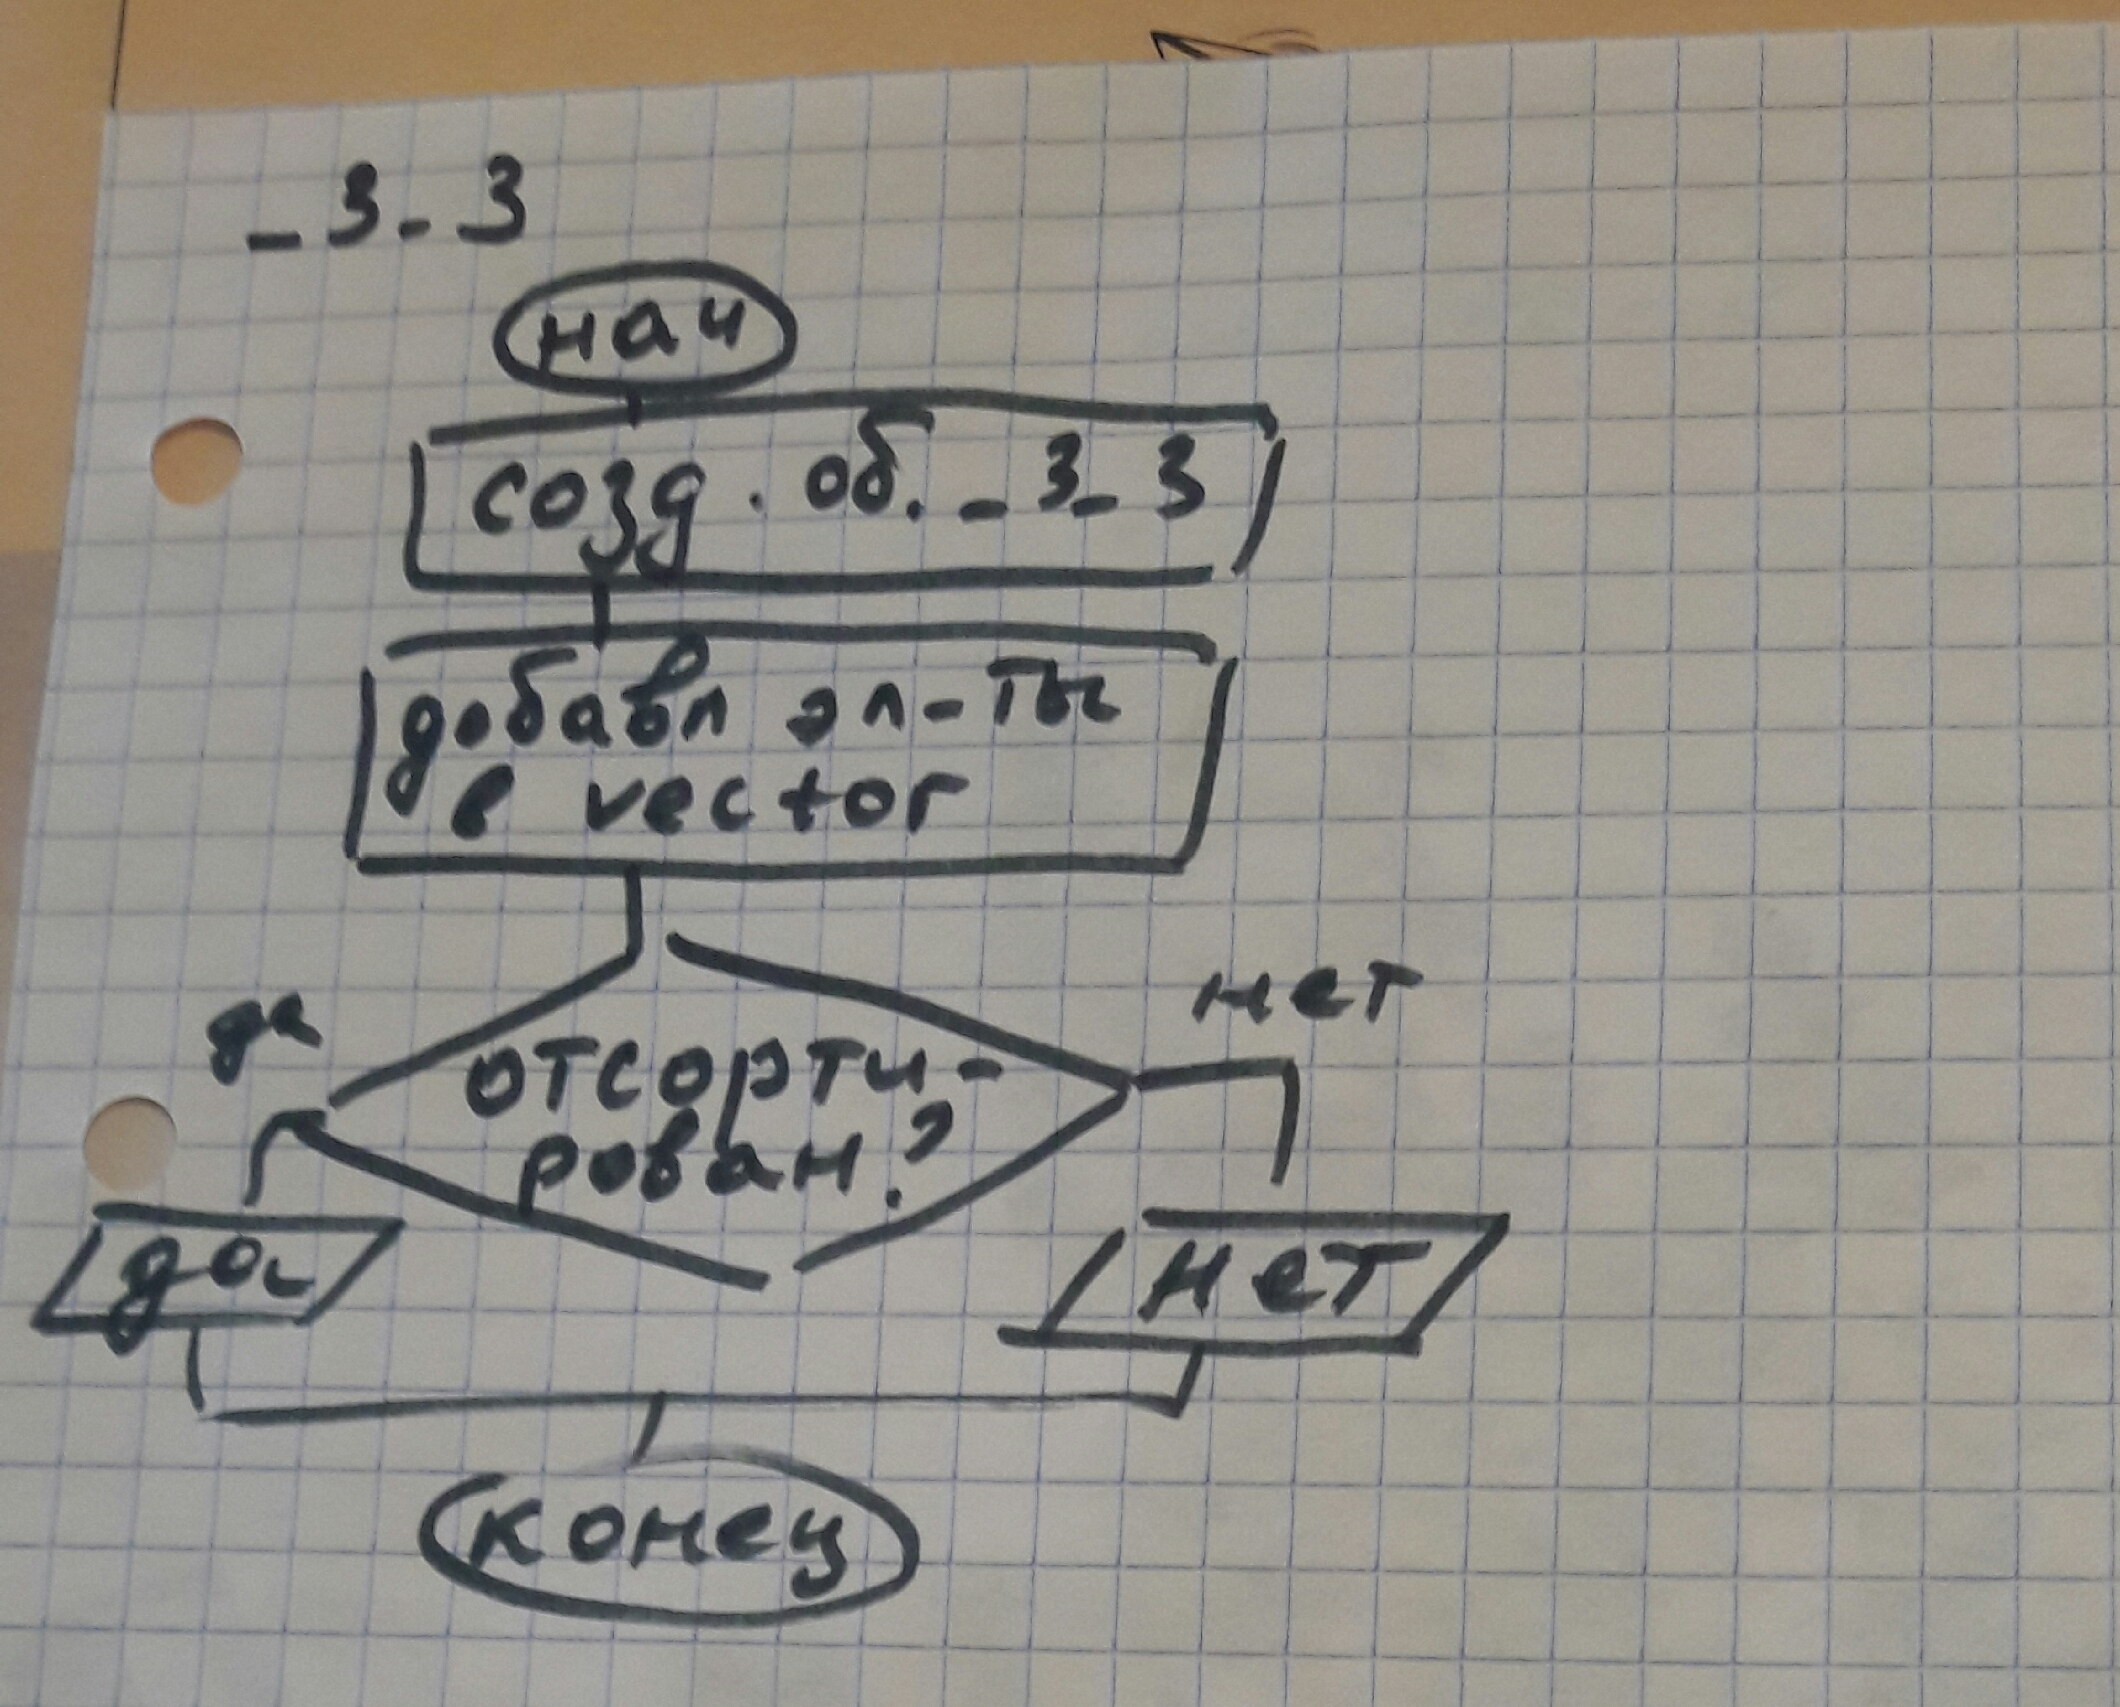 _3_3
нач
созд. об. _3_3
добавл эл-ты
в vector
да
нет
отсорти-
рован?
да
нет
конец